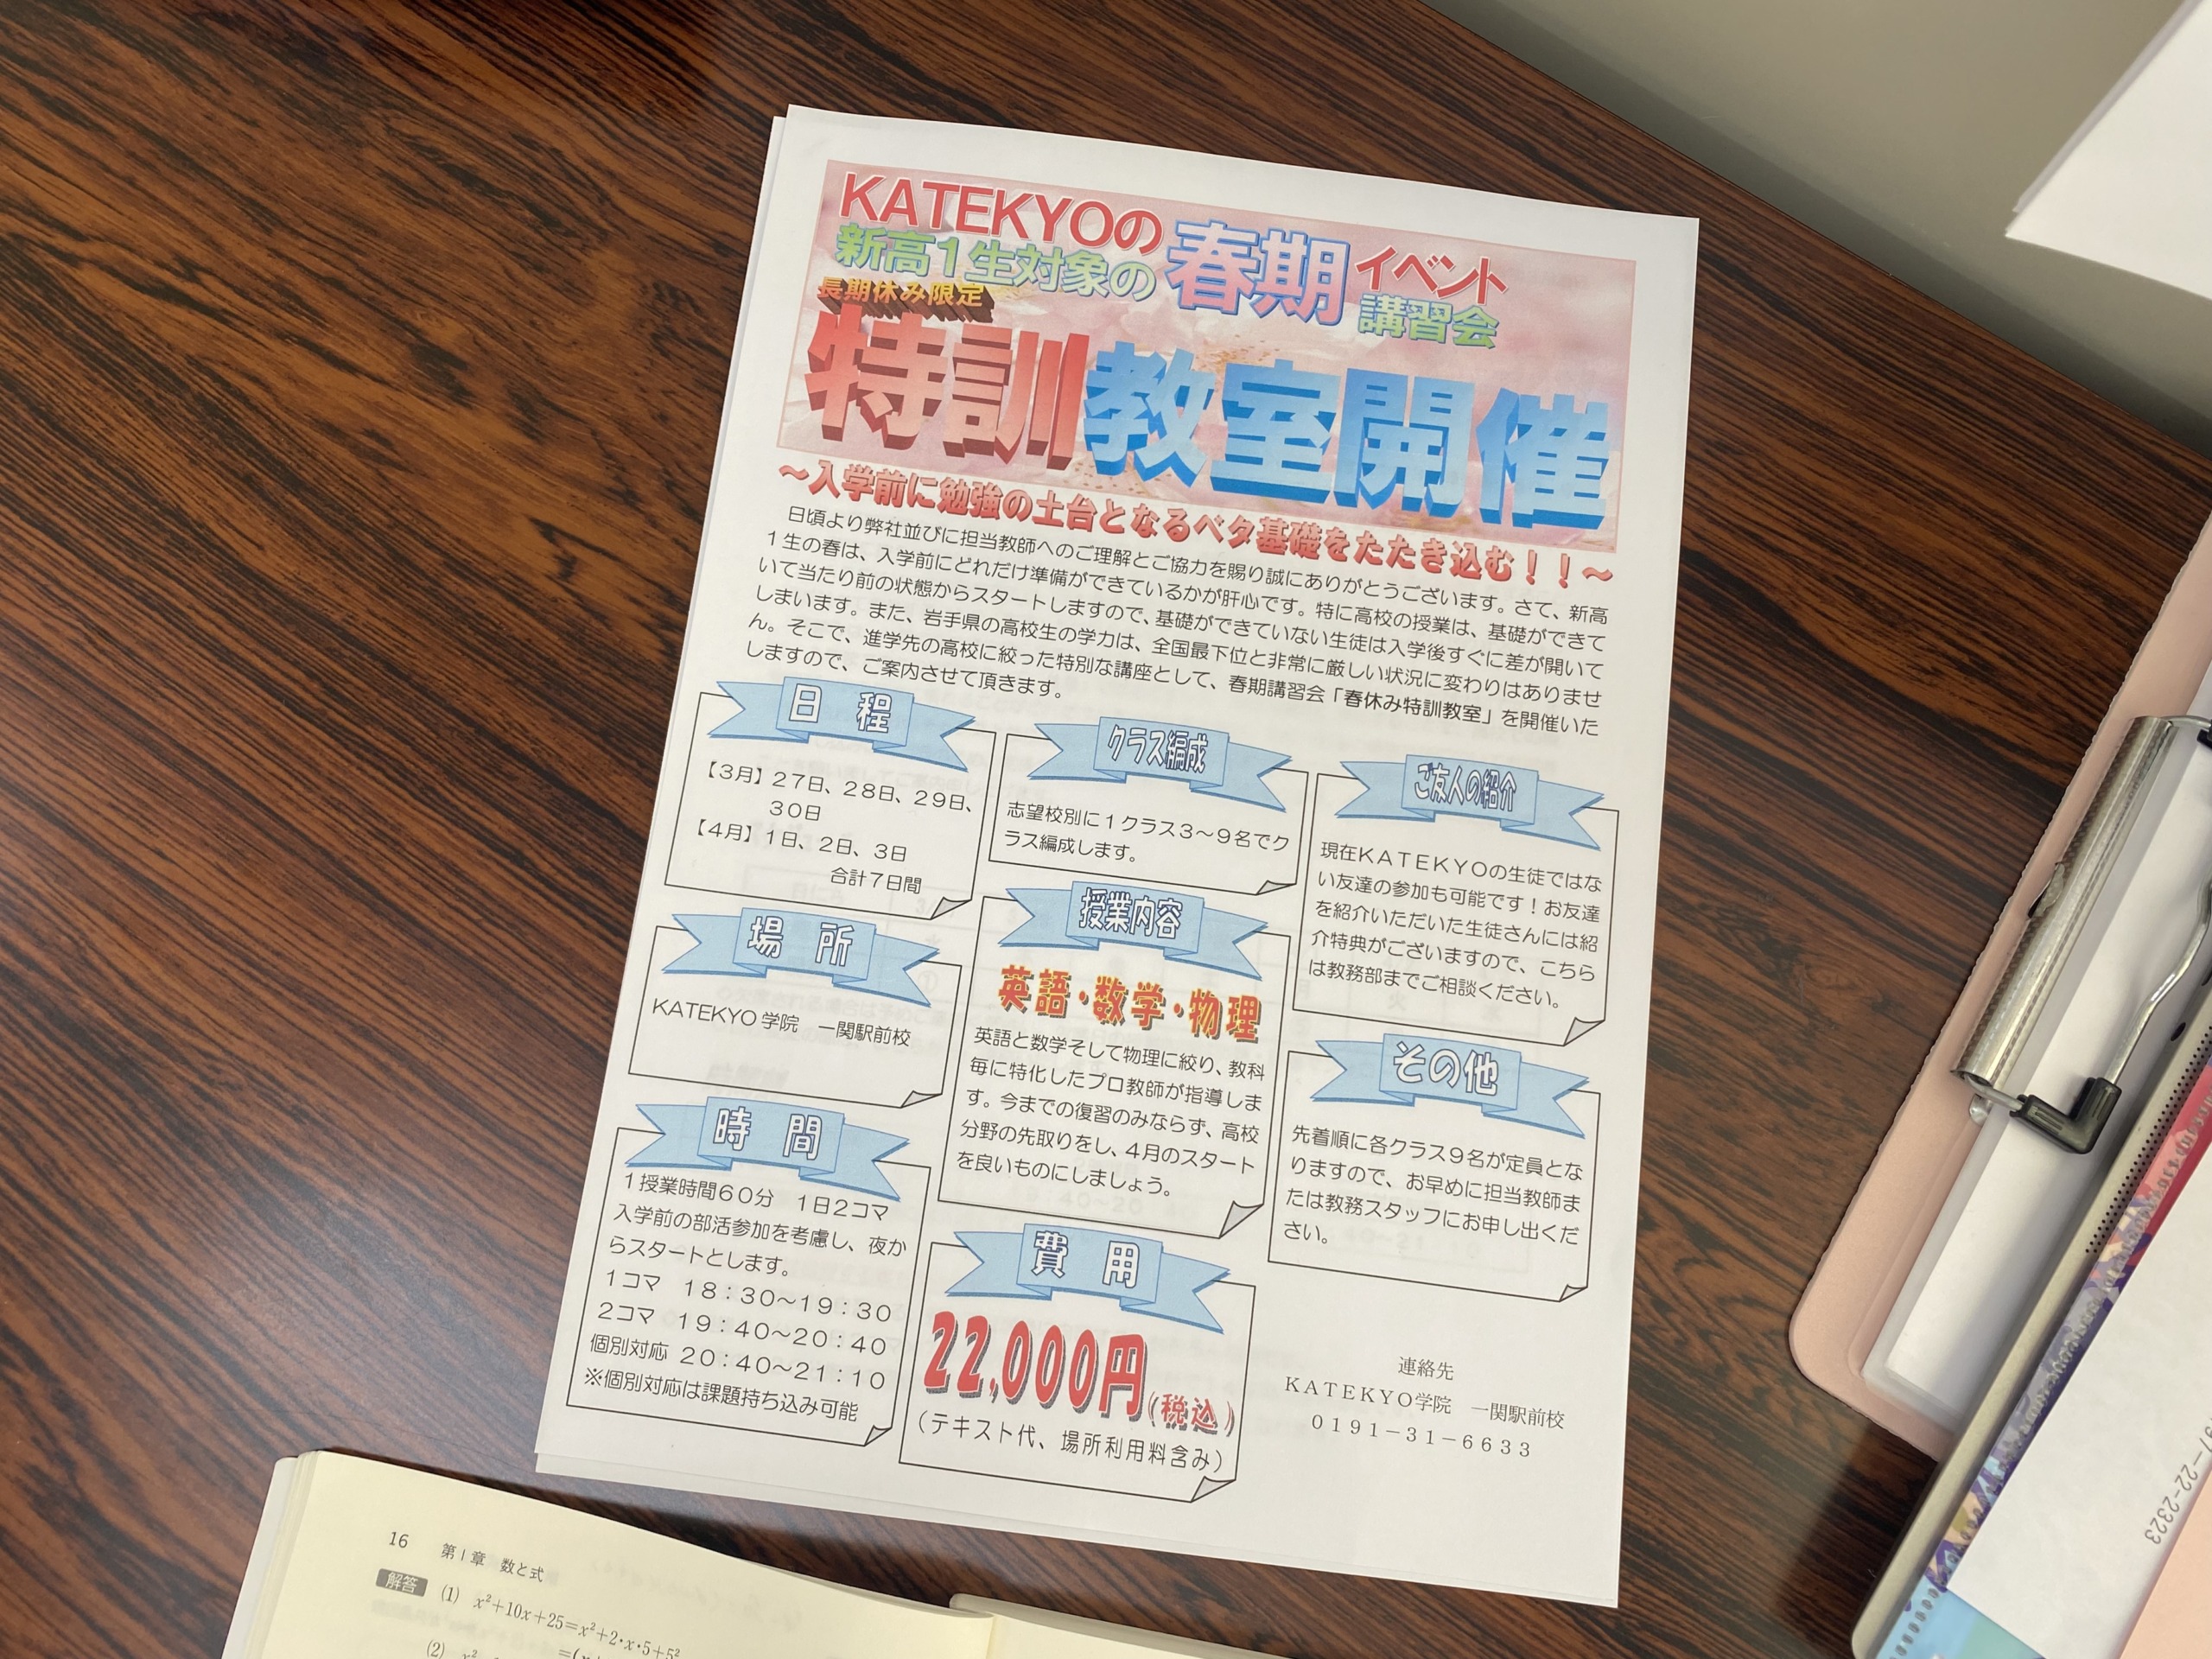 KATEKYOの
新高1生対象の
春期
イベント
講習会
長期休み限定
特訓教室開催
～入学前に勉強の土台となるベタ基礎をたたき込む！！～
日頃より弊社並びに担当教師へのご理解とご協力を賜り誠にありがとうございます。さて、新高
1生の春は、入学前にどれだけ準備ができているかが肝心です。特に高校の授業は、基礎ができて
いて当たり前の状態からスタートしますので、基礎ができていない生徒は入学後すぐに差が開いて
しまいます。また、岩手県の高校生の学力は、全国最下位と非常に厳しい状況に変わりはありませ
ん。そこで、進学先の高校に絞った特別な講座として、春期講習会「春休み特訓教室」を開催いた
しますので、ご案内させて頂きます。
日　程
【3月】27日、28日、29日、
30日
【4月】1日、2日、3日
合計7日間
場　所
KATEKYO学院　一関駅前校
時　間
1授業時間60分　1日2コマ
入学前の部活参加を考慮し、夜か
らスタートとします。
1コマ　18：30～19：30
2コマ　19：40～20：40
個別対応 20：40～21：10
※個別対応は課題持ち込み可能
クラス編成
志望校別に1クラス3～9名でク
ラス編成します。
授業内容
英語・数学・物理
英語と数学そして物理に絞り、教科
毎に特化したプロ教師が指導しま
す。今までの復習のみならず、高校
分野の先取りをし、4月のスタート
を良いものにしましょう。
費　用
22,000円(税込)
(テキスト代、場所利用料含み)
ご友人の紹介
現在KATEKYOの生徒ではな
い友達の参加も可能です！お友達
を紹介いただいた生徒さんには紹
介特典がございますので、こちら
は教務部までご相談ください。
その他
先着順に各クラス9名が定員とな
りますので、お早めに担当教師ま
たは教務スタッフにお申し出くだ
さい。
連絡先
KATEKYO学院　一関駅前校
0191－31－6633
16　第1章　数と式
解答　(1)　x²+10x+25=x²+2・x・5+5²
(2)　x²
-22-2323